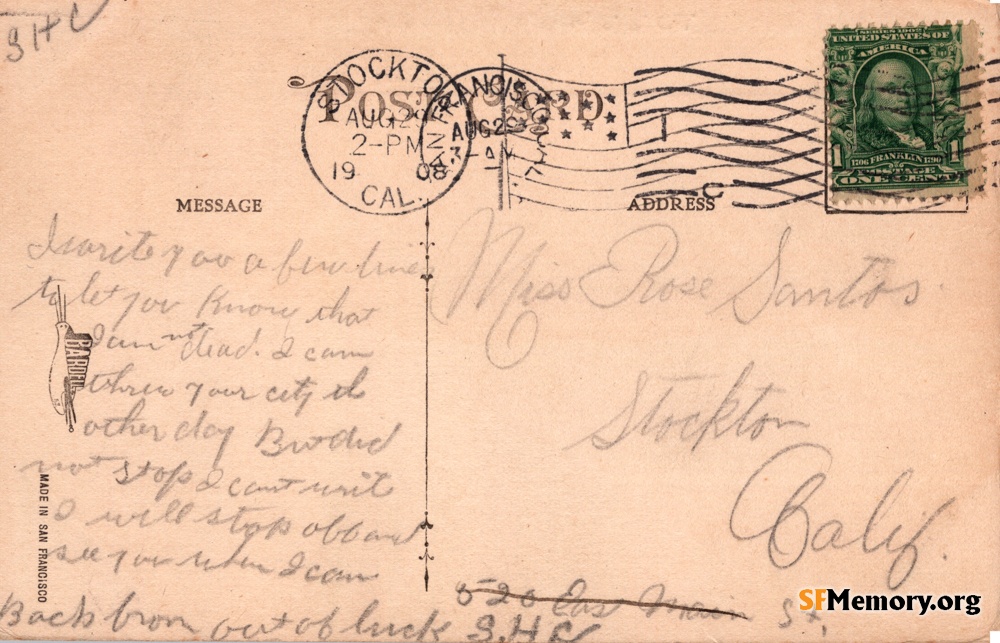 SHC
POST CARD
STOCKTON
AUG 29
2-PM
1908
CAL.
SAN FRANCISCO, CAL.
AUG 29
3-AM
SERIES 1902
UNITED STATES OF
AMERICA
1 1706 FRANKLIN 1790 1
POSTAGE
ONE CENT
MESSAGE
ADDRESS
I write you a few lines
to let you Know that
I am not dead. I cam
threw your city the
other day But did
not stop I cant write
I will stop off and
see you when I cam
Back from out of luck S.H.C
Miss Rose Santos.
Stockton
Calif.
520 East Main St.
BARDELL
MADE IN SAN FRANCISCO
SFMemory.org